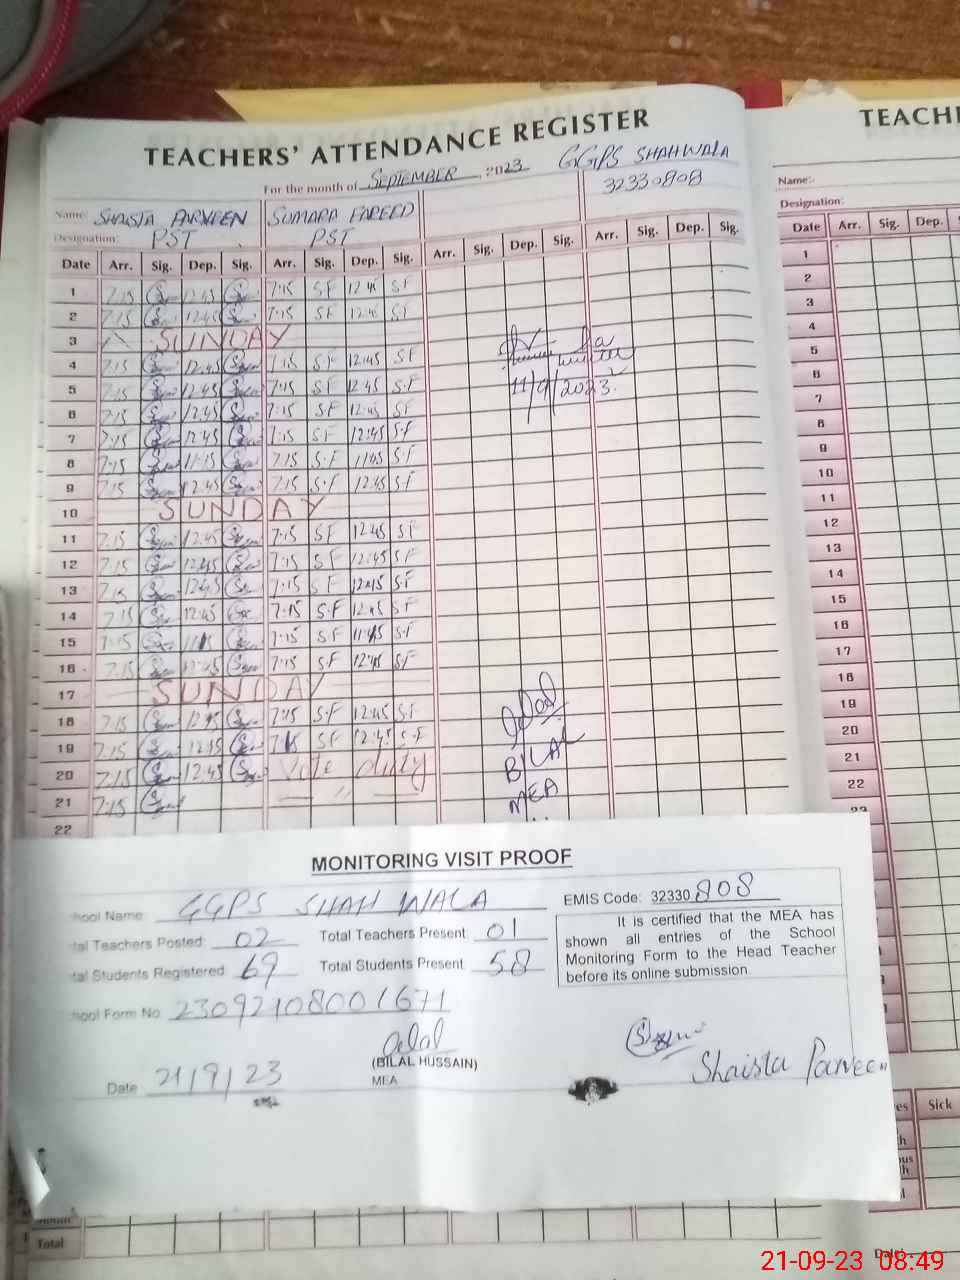 TEACHERS' ATTENDANCE REGISTER
For the month of SEPTEMBER 2023 GGPS SHAHWALA
32330808
Name: SHAISTA PARVEEN SUMARA FAREED
Designation: PST PST
Date Arr. Sig. Dep. Sig. Arr. Sig. Dep. Sig. Arr. Sig. Dep. Sig. Arr. Sig. Dep. Sig.
1 7:15 12:45 7:15 S.F 12:45 S.F
2 7:15 12:45 7:15 S.F 12:45 S.F
3 SUNDAY
4 7:15 12:45 7:15 S.F 12:45 S.F
5 7:15 12:45 7:15 S.F 12:45 S.F
6 7:15 12:45 7:15 S.F 12:45 S.F
7 7:15 12:45 7:15 S.F 12:45 S.F
8 7:15 11:15 7:15 S.F 11:45 S.F
9 7:15 12:45 7:15 S.F 12:45 S.F
10 SUNDAY
11 7:15 12:45 7:15 S.F 12:45 S.F
12 7:15 12:45 7:15 S.F 12:45 S.F
13 7:15 12:45 7:15 S.F 12:45 S.F
14 7:15 12:45 7:15 S.F 12:45 S.F
15 7:15 7:15 S.F 11:45 S.F
16 7:15 12:45 7:15 S.F 12:45 S.F
17 SUNDAY
18 7:15 12:45 7:15 S.F 12:45 S.F
19 7:15 12:15 7:15 S.F 12:45 S.F
20 7:15 12:45 Vote duty
21 7:15 — " —
22
11/9/2023
BILAL
MEA
TEACH
Name:-
Designation:
Date Arr. Sig. Dep.
1
2
3
4
5
6
7
8
9
10
11
12
13
14
15
16
17
18
19
20
21
22
23
MONITORING VISIT PROOF
hool Name GGPS SHAH WALA
EMIS Code: 32330 808
tal Teachers Posted: 02 Total Teachers Present 01
tal Students Registered 69 Total Students Present 58
It is certified that the MEA has
shown all entries of the School
Monitoring Form to the Head Teacher
before its online submission
hool Form No 23092108001671
(BILAL HUSSAIN)
MEA
Date 21/9/23
Shaista Parveen
es Sick
Total
Date
21-09-23 08:49